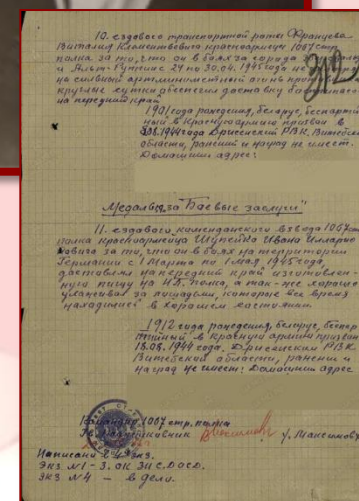 10. ездового транспортной роты Францева
Виталия Климентьевича красноармейца 1067 стр.
полка за то, что он в боях за города
и Альт- с 29 по 30.04.1945 года не
на сильный артминометный огонь
круглые сутки обеспечил доставку боепитания
на передний край
1901 года рождения, белорус, беспартий
ный в Красную армию призван в
1944 года Дриссенским РВК, Витебской
области, ранений и наград не имеет.
Домашний адрес:
Медалью „За Боевые заслуги"
11. ездового комендантского взвода 1067 стр.
полка красноармейца Ивана Илларио
новича за то, что он в боях на территории
Германии с 1 марта по 1 мая 1945 года
доставлял на передний край изготовлен-
ную пищу на полка, а так-же хорошо
ухаживал за лошадьми, которые все время
находились в хорошем состоянии
1912 года рождения, белорус, беспар
тийный в Красную армию призван
18.08.1944 года. Дриссенским РВК
Витебской области, ранений и
наград не имеет: Домашний адрес
Командир 1067 стр. полка
Гв. Подполковник У. Максимов
Написано в 4х экз.
Экз №1-3. ОК 311 С.Д О С.Д.
Экз №4 — в дело.